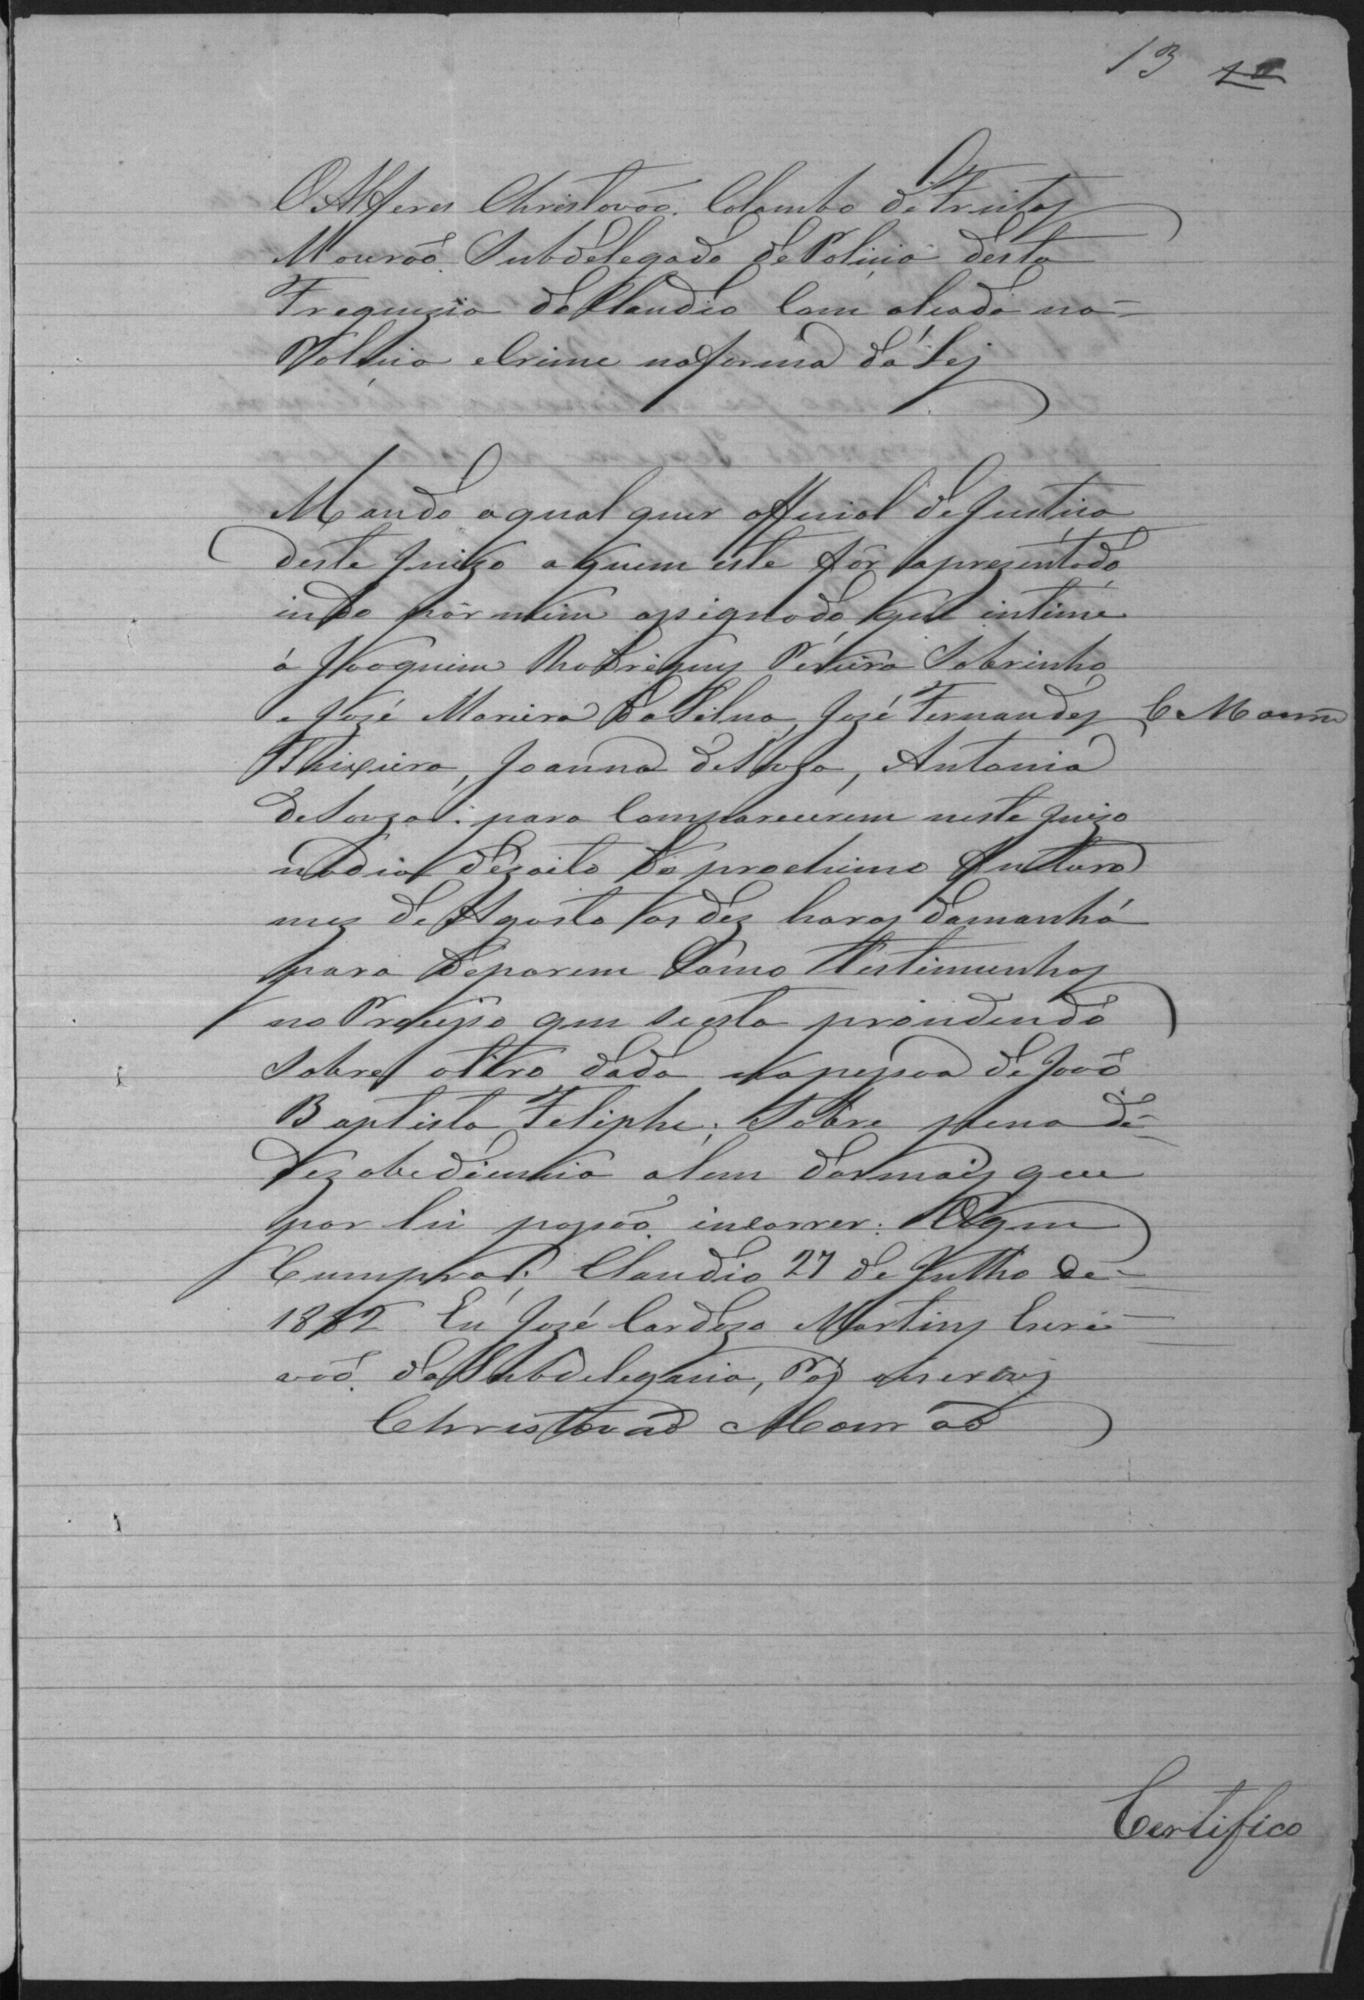 13
O Alferes Christovaõ Colombo de Freitas
Mouraõ Subdelegado de Policia desta
Freguesia do Claudio Com alçada na
Policia e Crime na forma da Lej
Mando a qual quer official de Justiça
deste Juizo a quem este fôr apresentado
indo por mim assignado, que intime
á Joaquim Rodrigues Pereira Sobrinho
e José Moreira da Silva, José Fernandes C. Mourão
Theixeira, Joanna de Souza, Antonia
de Souza: para Comparecerem neste Juizo
no dia dezoito do prochimo futturo
mez de Agosto as dez horas da manhá
para deporem Como testimunhas
no Proceсso que se esta prosedendo
Sobre o tiro dado na pessoa de Joaõ
Baptista Feliphe; Sobre pena de
dezobediencia alem das mais que
por Lei possaõ incorrer. O que
Cumpra. Claudio 27 de Julho de
1882 Eu José Cardozo Martins Escri
vaõ da Subdelegacia, que escrevj
Christovaõ Mouraõ
Certifico